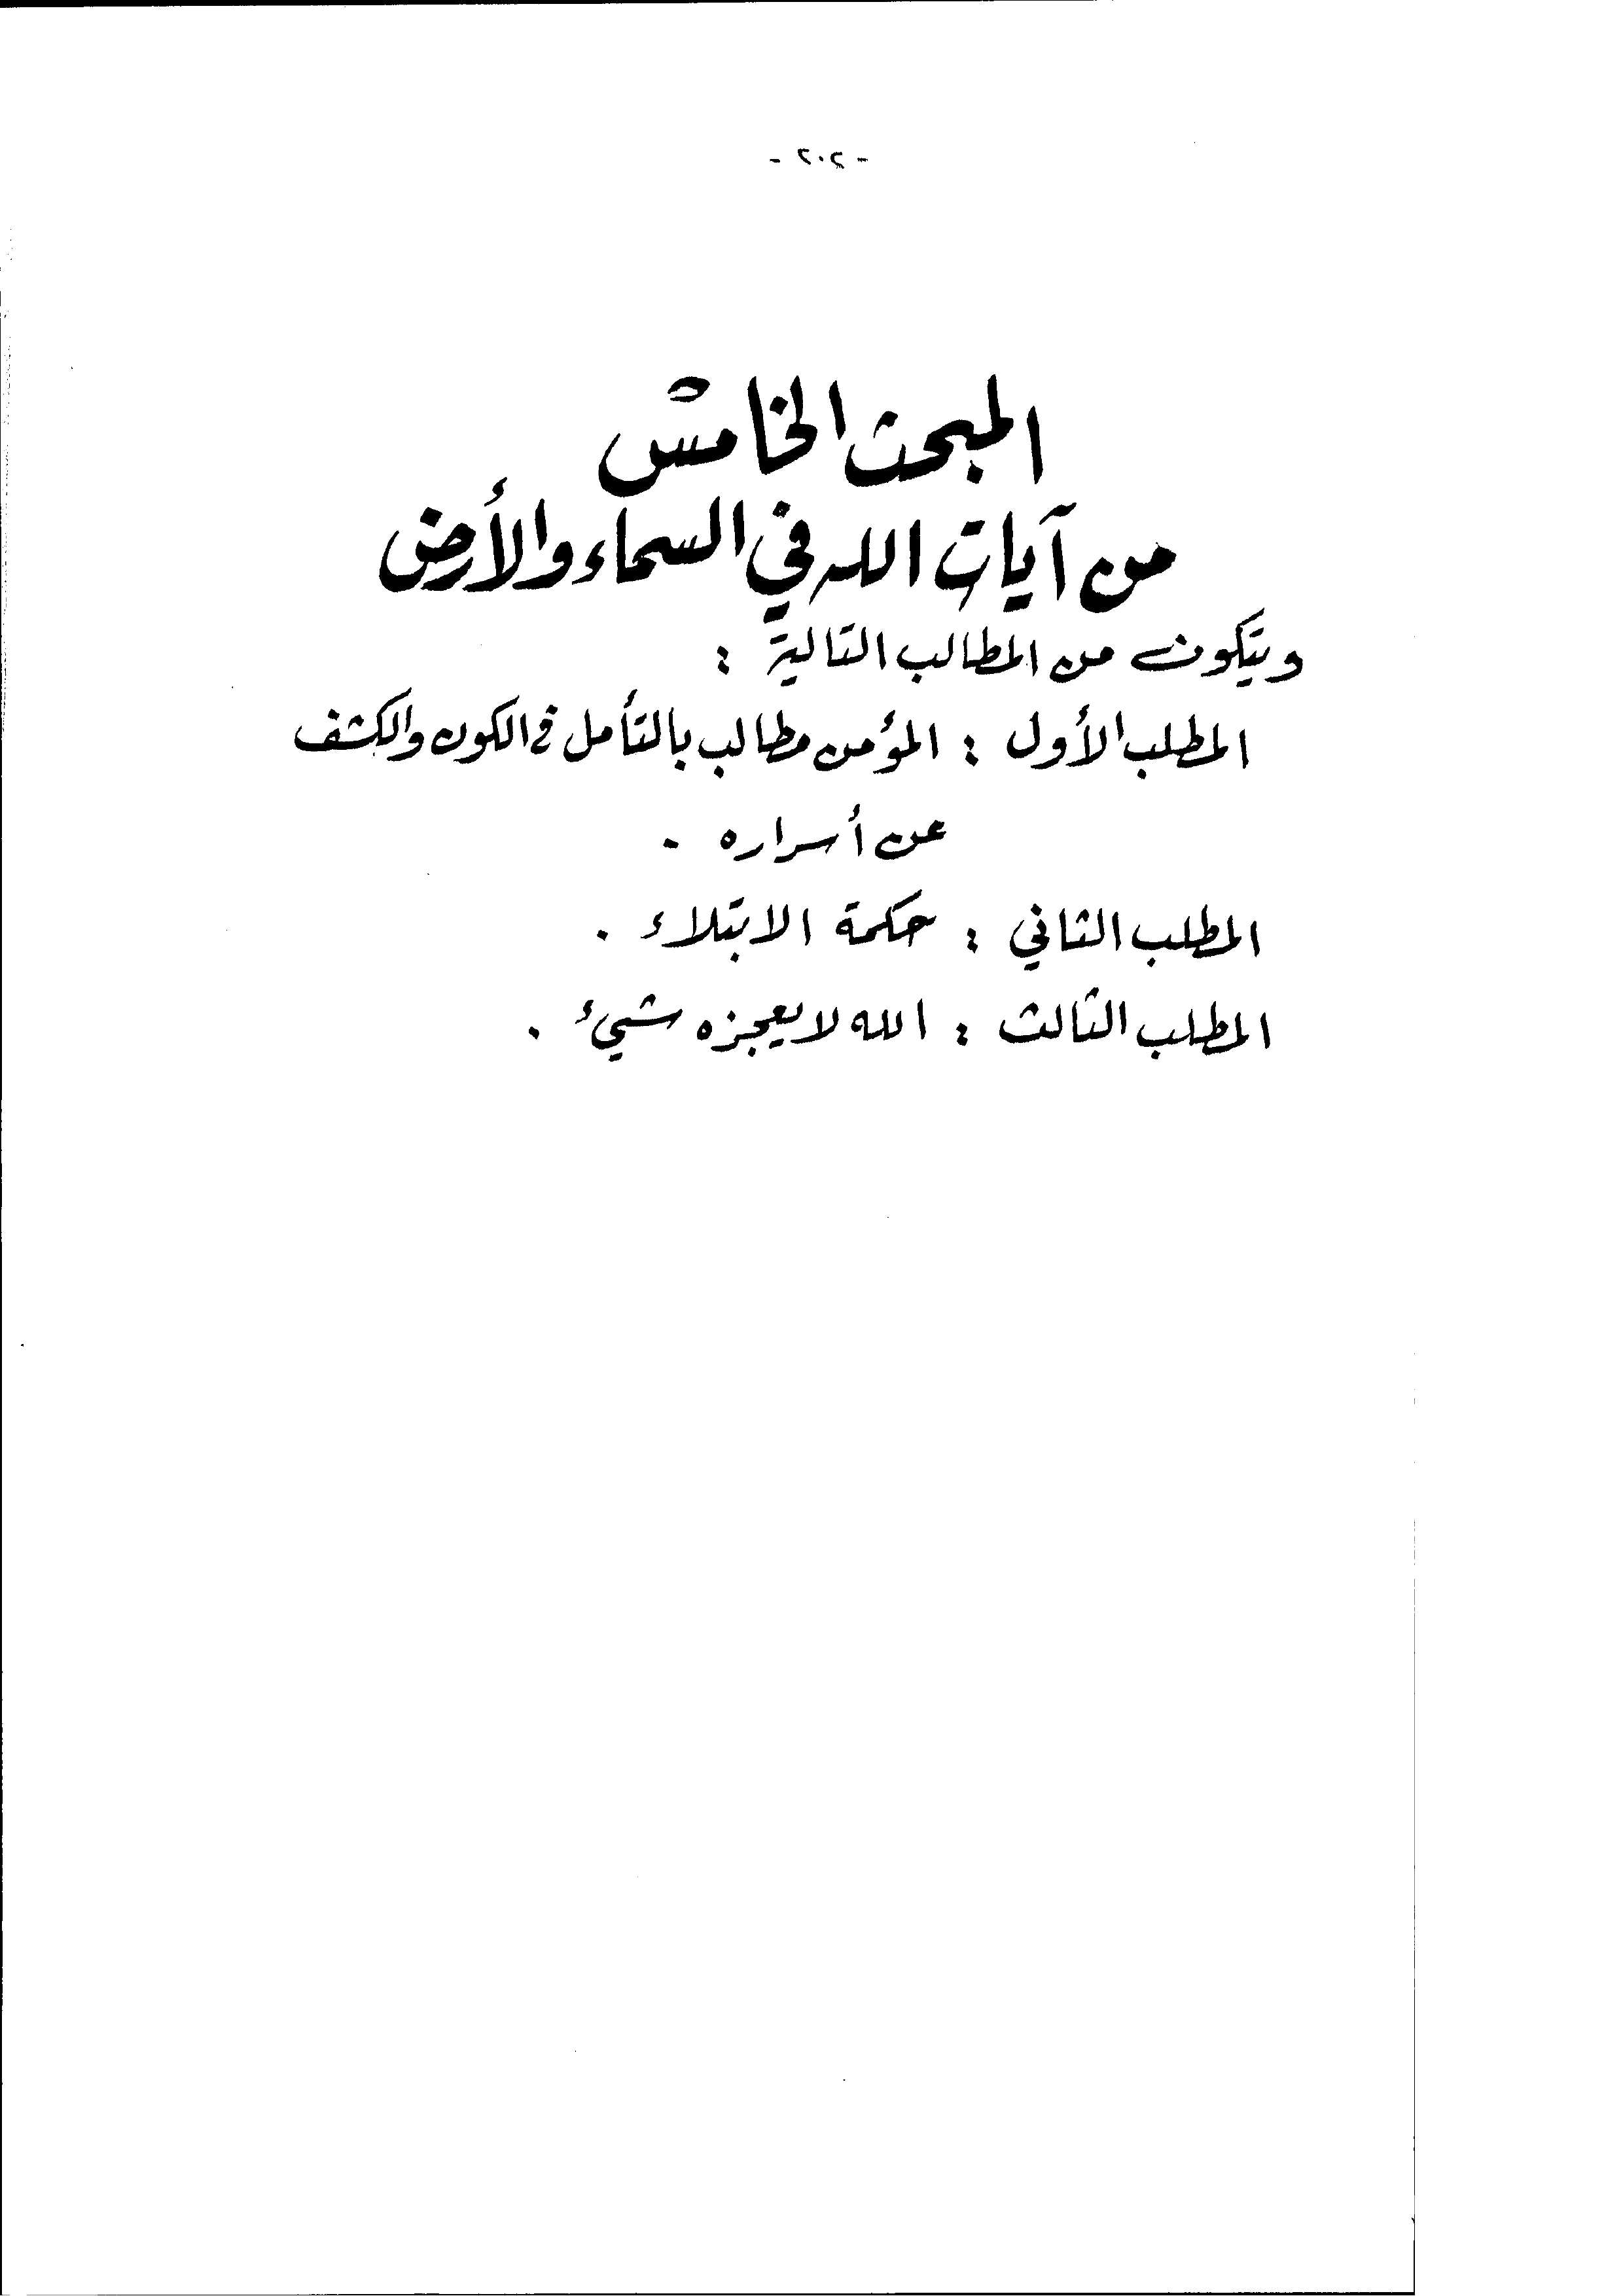 - ٢٠٢ -
المبحث الخامس
من آيات الله في السماء والأرض
ويتكون من المطالب التالية :
المطلب الأول : المؤمن مطالب بالتأمل في الكون والكشف
عن أسراره .
المطلب الثاني : حكمة الابتلاء .
المطلب الثالث : الله لا يعجزه شيئ .